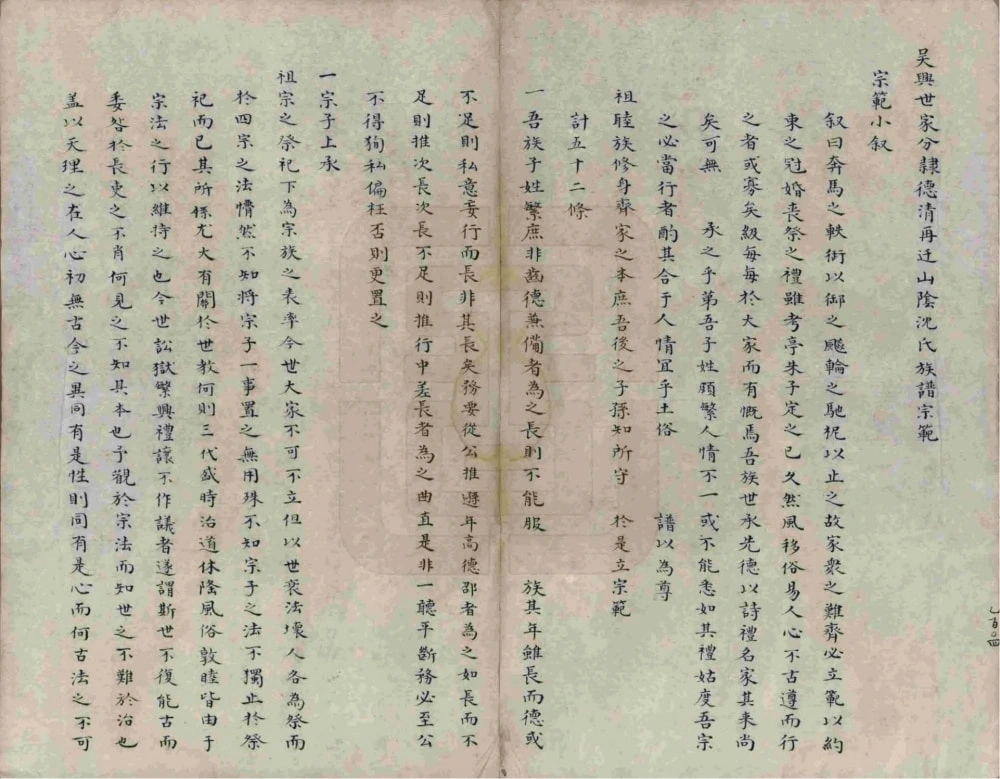 吴興世家分隸德清再迁山陰沈氏族譜宗範
宗範小叙
叙曰奔馬之軼術以御之飈輪之馳柅以止之故家衆之難齊必立範以約
束之冠婚丧祭之禮雖考亭朱子定之已久然風移俗易人心不古遵而行
之者或寡矣緅每每於大家而有慨焉吾族世承先德以詩禮名家其来尚
矣可無 承之乎第吾子姓頗繁人情不一或不能悉如其禮姑度吾宗
之必當行者酌其合于人情冝乎土俗 譜以為尊
祖睦族修身齊家之本庶吾後之子孫知所守 於是立宗範
計五十二條
一吾族子姓繁庶非齒德蕪備者為之長則不能服 族其年雖長而德或
不足則私意妄行而長非其長矣務要從公推選年高德邵者為之如長而不
足則推次長次長不足則推行中差長者為之曲直是非一聽平斷務必至公
不得狥私偏枉否則更置之
一宗子上承
祖宗之祭祀下為宗族之表率今世大家不可不立但以世衰法壞人各為祭而
於四宗之法懵然不知将宗子一事置之無用殊不知宗子之法不獨止於祭
祀而已其所係尤大有關於世教何則三代盛時治道休隆風俗敦睦皆由于
宗法之行以維持之也今世訟獄繁興禮讓不作議者遂謂斯世不復能古而
委咎於長吏之不肖何見之不知其本也予觀於宗法而知世之不難於治也
盖以天理之在人心初無古今之異同有是性則同有是心而何古法之不可
乙百四